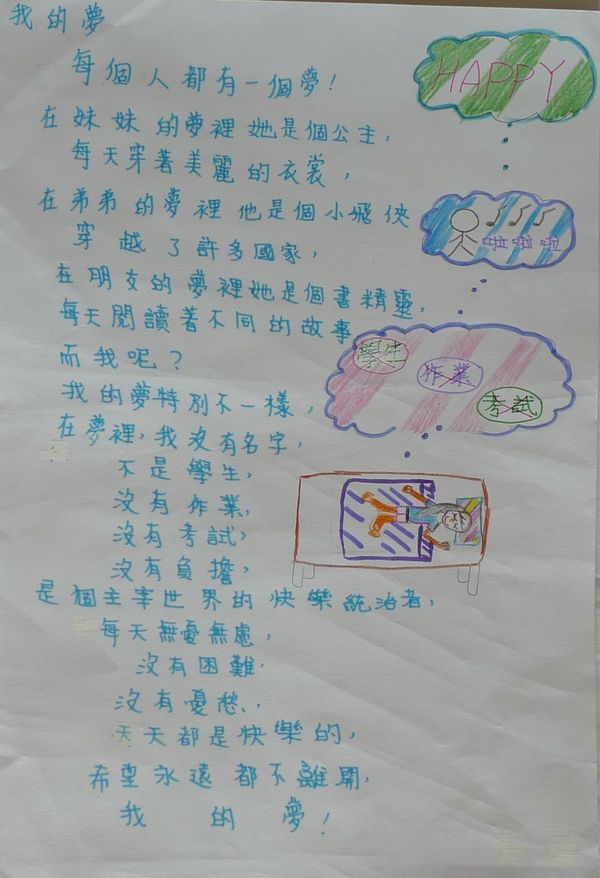 我的夢
每個人都有一個夢！
在妹妹的夢裡她是個公主，
每天穿著美麗的衣裳，
在弟弟的夢裡他是個小飛俠
穿越了許多國家，
在朋友的夢裡她是個書精靈，
每天閱讀著不同的故事
而我呢？
我的夢特別不一樣，
在夢裡，我沒有名字，
不是學生，
沒有作業，
沒有考試，
沒有負擔，
是個主宰世界的快樂統治者，
每天無憂無慮，
沒有困難，
沒有憂愁，
天天都是快樂的，
希望永遠都不離開，
我的夢！
HAPPY
啦啦啦
學生
作業
考試